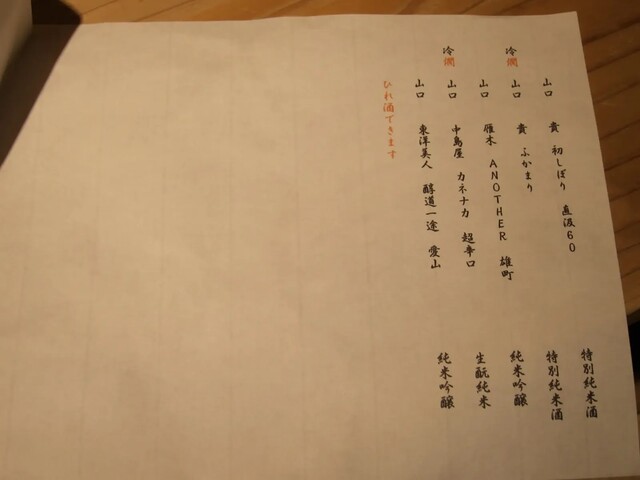 山口 貴 初しぼり 直汲60 特別純米酒
冷燗 山口 貴 ふかまり 特別純米酒
山口 雁木 ANOTHER 雄町 純米吟醸
冷燗 山口 中島屋 カネナカ 超辛口 生酛純米
山口 東洋美人 醇道一途 愛山 純米吟醸
ひれ酒できます